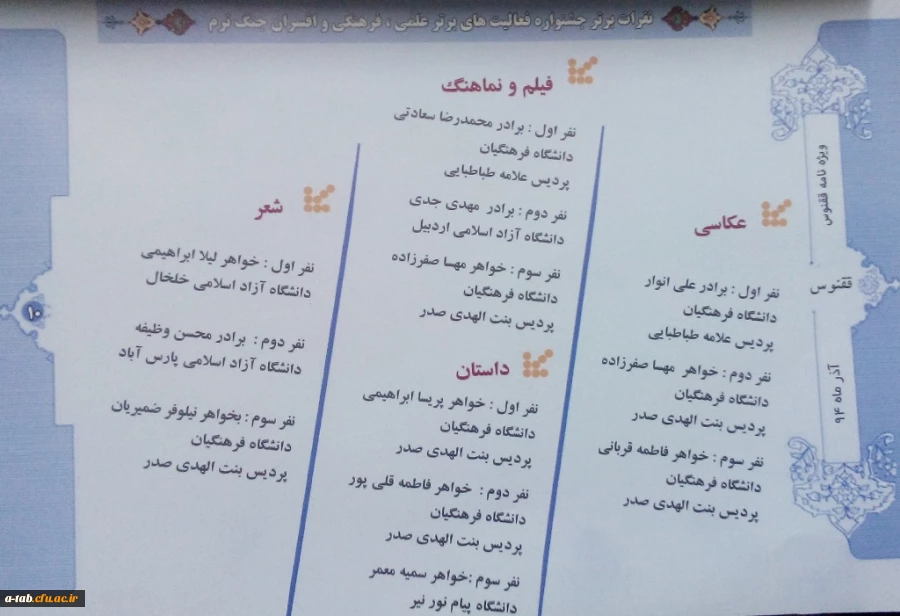 نفرات برتر جشنواره فعالیت های برتر علمی ، فرهنگی و افسران جنگ نرم
ویژه نامه ققنوس
ققنوس
آذر ماه ۹۴
عکاسی
نفر اول : برادر علی انوار
دانشگاه فرهنگیان
پردیس علامه طباطبایی
نفر دوم : خواهر مهسا صفرزاده
دانشگاه فرهنگیان
پردیس بنت الهدی صدر
نفر سوم : خواهر فاطمه قربانی
دانشگاه فرهنگیان
پردیس بنت الهدی صدر
فیلم و نماهنگ
نفر اول : برادر محمدرضا سعادتی
دانشگاه فرهنگیان
پردیس علامه طباطبایی
نفر دوم : برادر مهدی جدی
دانشگاه آزاد اسلامی اردبیل
نفر سوم : خواهر مهسا صفرزاده
دانشگاه فرهنگیان
پردیس بنت الهدی صدر
داستان
نفر اول : خواهر پریسا ابراهیمی
دانشگاه فرهنگیان
پردیس بنت الهدی صدر
نفر دوم : خواهر فاطمه قلی پور
دانشگاه فرهنگیان
پردیس بنت الهدی صدر
نفر سوم :خواهر سمیه معمر
دانشگاه پیام نور نیر
شعر
نفر اول : خواهر لیلا ابراهیمی
دانشگاه آزاد اسلامی خلخال
نفر دوم : برادر محسن وظیفه
دانشگاه آزاد اسلامی پارس آباد
نفر سوم : بخواهر نیلوفر ضمیریان
دانشگاه فرهنگیان
پردیس بنت الهدی صدر
۱۰
a-tab.cfu.ac.ir